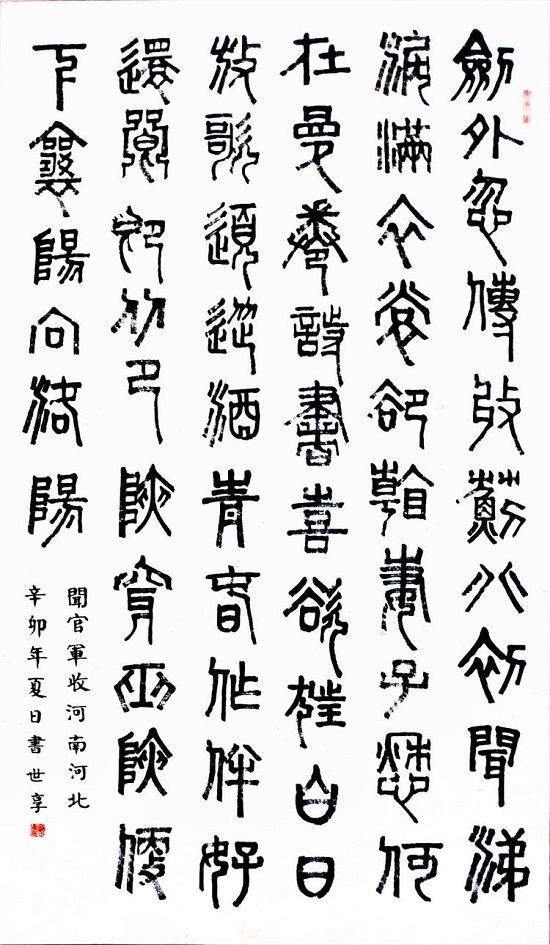 劍外忽傳收薊北初聞涕
淚滿衣裳卻看妻子愁何
在曼卷詩書喜欲狂白日
放歌須從酒青春作伴好
還鄉即从巴陝穿巫陝便
下襄陽向洛陽
聞官軍收河南河北
辛卯年夏日書世享